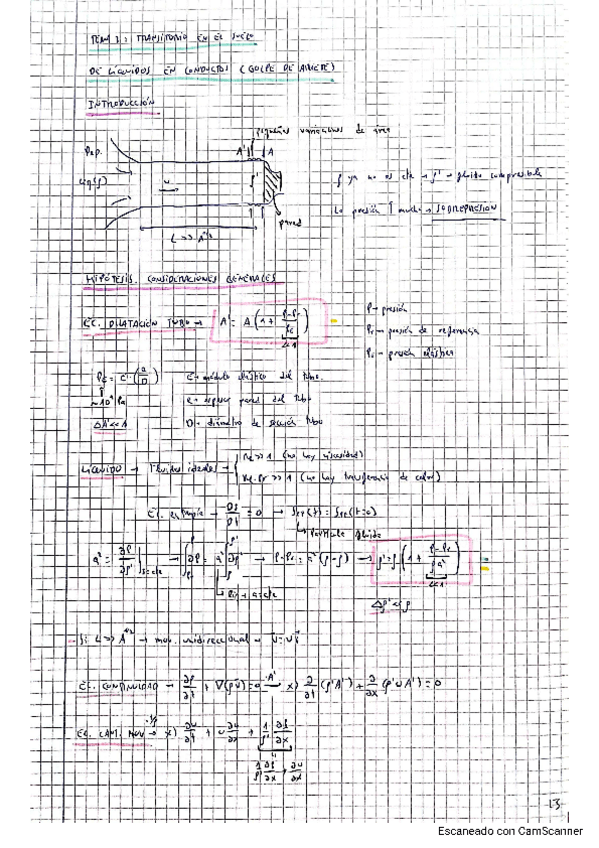 TEMA 7: TRANSITORIO EN EL SUELO
DE LÍQUIDOS EN CONDUCTOS (GOLPE DE ARIETE)
INTRODUCCIÓN
pequeñas variaciones de área
A' A
Dep.
Liq (ρ)
u
ρ ya no es cte → ρ' → fluido compresible
La presión ↑ mucho → SOBREPRESION
pared
L >> A^1/2
HIPÓTESIS. CONSIDERACIONES GENERALES
EC. DILATACIÓN TUBO → A' = A (1 + (P-Pr)/Pe)
<<1
P → presión
Pr → presión de referencia
Pe → presión elástica
Pe = E·(e/D)
E → módulo elástico del tubo.
e → espesor pared del tubo
D → diámetro de sección tubo
ΔA' << A
LÍQUIDO → Fluidos ideales → Re >> 1 (no hay viscosidad)
Re·Pr >> 1 (no hay transferencia de calor)
Ec. entropía → DS/Dt = 0 → (t) = (t=0)
partícula fluida
a² = ∂P/∂ρ' |s=cte → ∫∂P = a² ∫∂ρ' → P-Pr = a² (ρ'-ρ) → ρ' = ρ (1 + (P-Pr)/(ρa²))
<<1
a = cte
Δρ' << ρ
Si L >> A^1/2 → mov. unidireccional → ū = u ī
EC. CONTINUIDAD → ∂ρ/∂t + ∇(ρū) = 0 ·A' → x) ∂/∂t (ρ'A') + ∂/∂x (ρ'uA') = 0
EC. CANT. MOV → x) ∂u/∂t + u ∂u/∂x + 1/ρ' ∂P/∂x
13
Escaneado con CamScanner